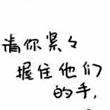 请你紧々
握住他们
的手.